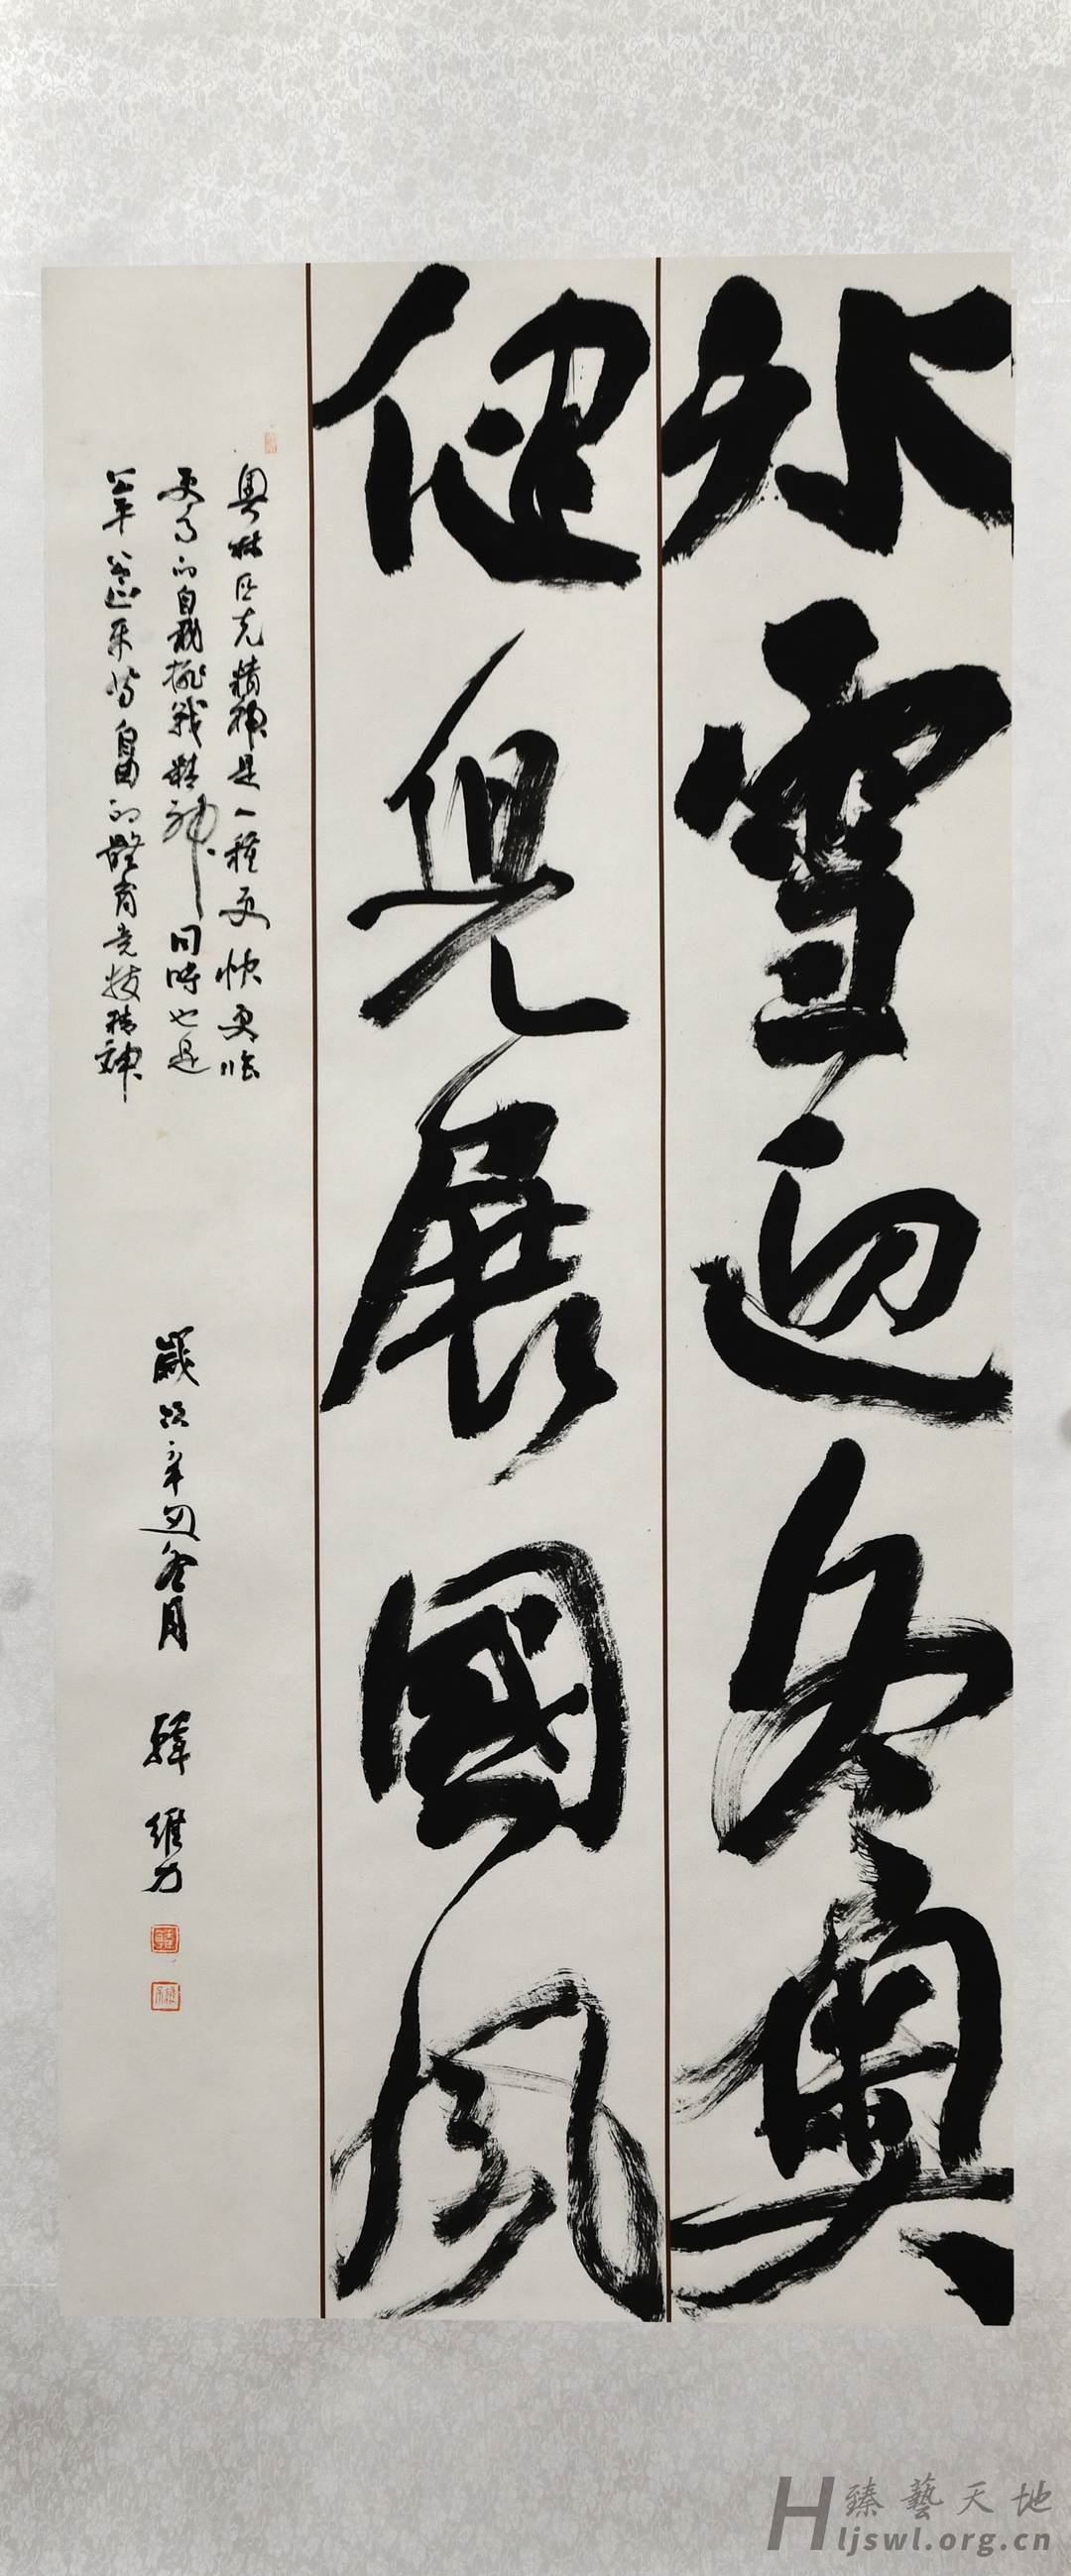 冰雪迎冬奧
健兒展國風
奧林匹克精神是一種更快更強
更高的自我挑戰精神同時也是
公平公正平等自由的體育竞技精神
歲次辛丑冬月 韓維力
臻藝天地
ljswl.org.cn